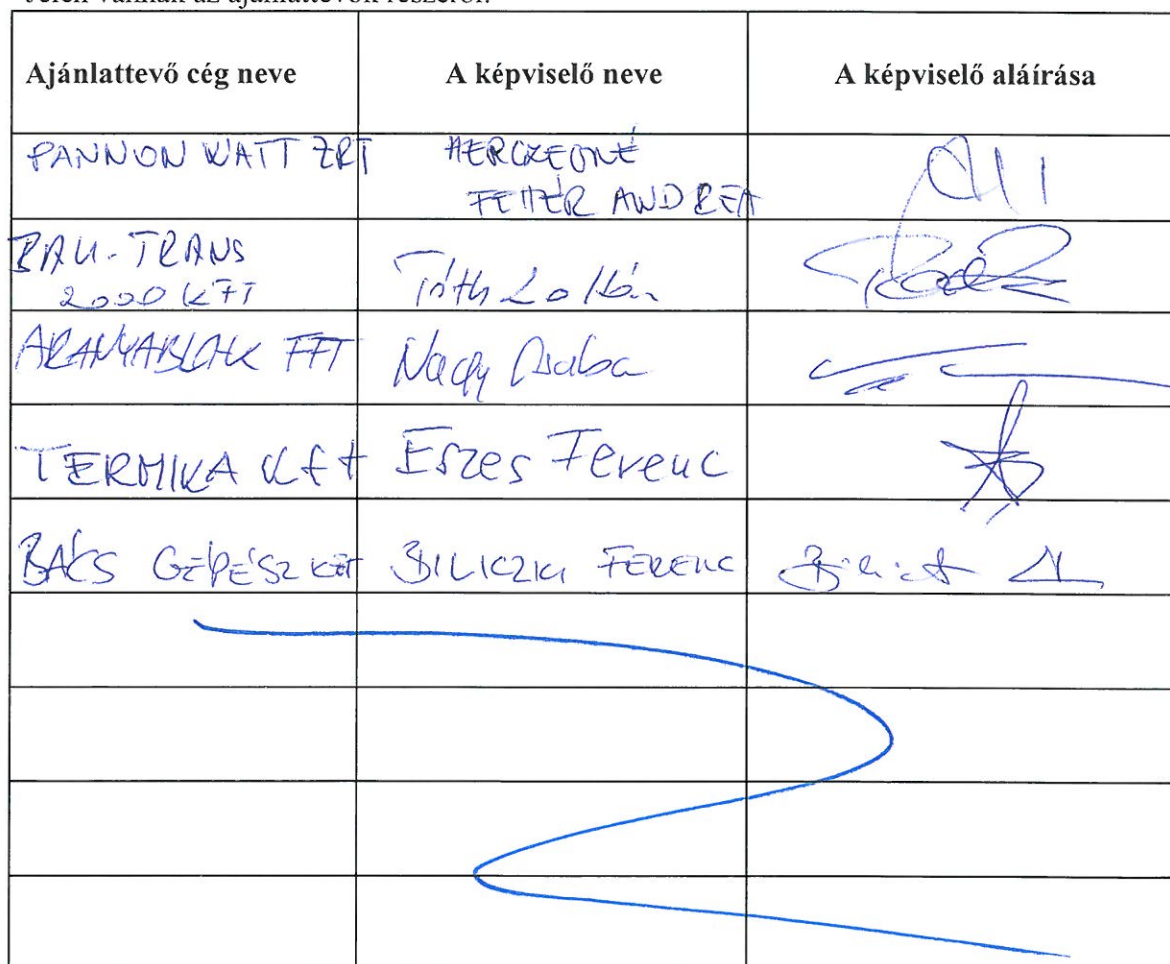 Jelen vannak az ajánlattevők részéről:
Ajánlattevő cég neve A képviselő neve A képviselő aláírása
PANNON WATT ZRT HERCZEGNÉ
FEHÉR ANDREA
BAU-TRANS
2000 KFT Tóth Zoltán
ARANYABLAK KFT Nagy Csaba
TERMIKA Kft Eszes Ferenc
BÁCS GÉPÉSZ KFT BILICZKI FERENC